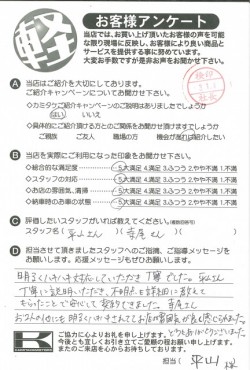 軽
お客様アンケート
当店では、お買い上げ頂いたお客様の声を可能な限り現場に反映し、お客様により良い商品とサービスを提供する事に努めています。
大変お手数ですが是非お声をお聞かせ下さい。
A 当店はご紹介を大切にしております。
ご紹介キャンペーンについてお聞かせ下さい。
◇カミタケご紹介キャンペーンのご説明はありましたでしょうか
はい いいえ
◇具体的にご紹介頂ける方とのご関係をお聞かせ頂けますでしょうか
ご親族 ご友人 職場の方 機会が有れば紹介したい
B 当店を実際にご利用になった印象をお聞かせ下さい。
◇総合的な満足度 5大満足 4.満足 3.ふつう 2.やや不満 1.不満
◇スタッフの対応 5大満足 4.満足 3.ふつう 2.やや不満 1.不満
◇お店の雰囲気、清掃 5大満足 4.満足 3.ふつう 2.やや不満 1.不満
◇納車時のお車の状態 5大満足 4.満足 3.ふつう 2.やや不満 1.不満
C 評価したいスタッフがいれば教えてください。
スタッフ名( 平山さん )( 寺尾さん )
D 担当させて頂きましたスタッフへのご指摘、ご指導メッセージをお願いします。応援メッセージもぜひお願い致します。
明るくハキハキ対応していただき丁寧でした。平山さん
丁寧に説明いただき、不明点も詳細に教えて
もらったことで安心して契約できました。寺尾さん
K
ご協力に心よりお礼を申し上げます。
今後とも宜しくお引き立てご愛顧の程お願い申し上げます。
またのご来店を心からお待ちしております。
担当( 平山 様